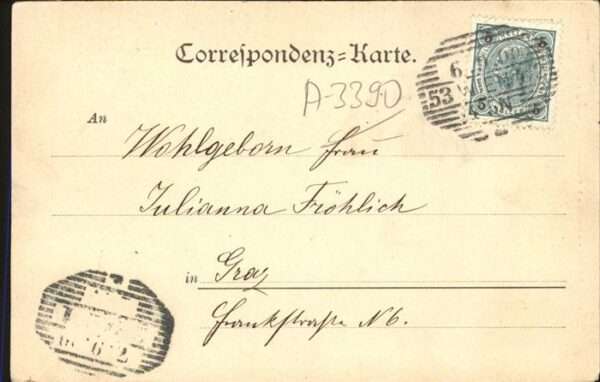 Correspondenz=Karte.
A-3390
5 5
6
53
WIEN
5 5
An
Wohlgeborn Frau
Julianna Fröhlich
in Graz
Frankstraße N6.
6 2